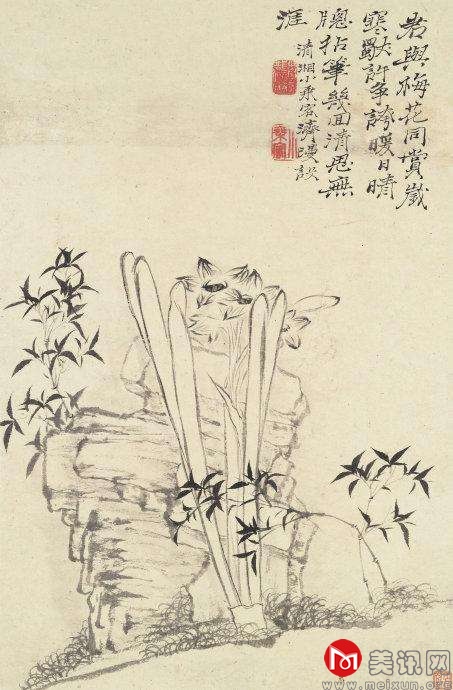 君與梅花同賞歲
寒獨許爭誇暖日晴
牕拈筆幾回清思無
涯
清湘小乘客濟漫設
美讯网
www.meixun.org